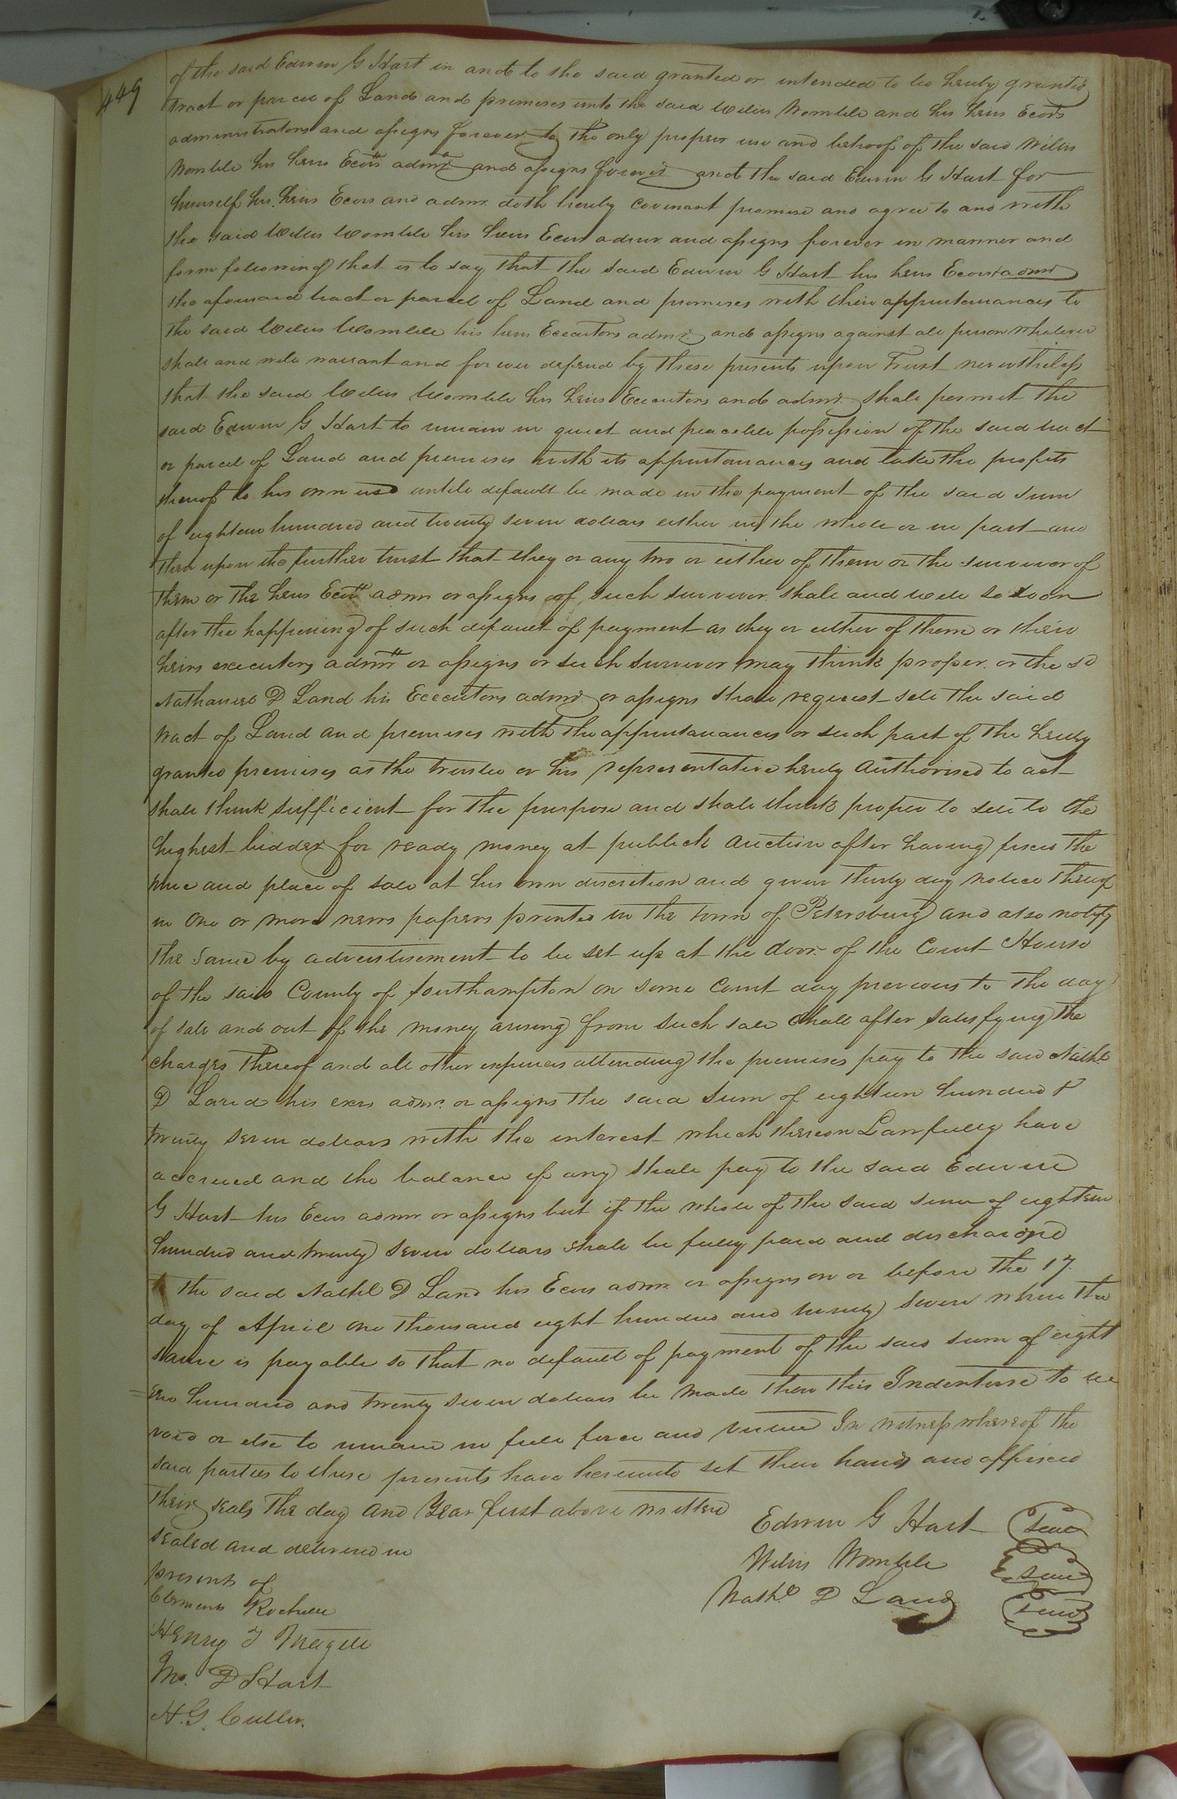 449
of the said Edwin G Hart in and to the said granted or intended to be hereby granted
tract or parcel of Land and premises unto the said Willis Womble and his heirs Exors
administrators and assigns forever to the only proper use and behoof of the said Willis
Womble his heirs Exors admrs and assigns forever and the said Edwin G Hart for
himself his heirs Exors and admrs doth hereby covenant promise and agree to and with
the said Willis Womble his heirs Exors admrs and assigns forever in manner and
form following that is to say that the said Edwin G Hart his heirs Exors & admrs
the aforesaid tract or parcel of Land and premises with their appurtenances to
the said Willis Womble his heirs Executors admrs and assigns against all person whatever
shall and will warrant and forever defend by these presents upon Trust nevertheless
that the said Willis Womble his heirs Executors and admrs shall permit the
said Edwin G Hart to remain in quiet and peacible possession of the said tract
or parcel of Land and premises with its appurtenances and take the profits
thereof to his own use untill default be made in the payment of the said sum
of eighteen hundred and twenty seven dollars either in the whole or in part and
then upon the further trust that they or any two or either of them or the survivor of
them or the heirs Exors admrs or assigns of such survivor shall and will so soon
after the happening of such default of payment as they or either of them or their
heirs executors admrs or assigns or such survivor may think proper or the sd
Nathaniel D Land his Executors admrs or assigns shall request sell the said
tract of Land and premises with the appurtenances or such part of the hereby
granted premises as the trustee or his representative hereby authorised to act
shall think sufficient for the purpose and shall think proper to sell to the
highest bidder for ready money at publick auction after having fixed the
time and place of sale at his own discretion and given thirty day notice thereof
in one or more news papers printed in the town of Petersburg and also notify
the same by advertisement to be set up at the door of the Court House
of the said County of Southampton on some Court day previous to the day
of sale and out of the money arising from such sale shall after satisfying the
charges thereof and all other expences attending the premises pay to the said Nathl
D Land his exrs admrs or assigns the said sum of eighteen hundred &
twenty seven dollars with the interest which thereon Lawfully have
accrued and the balance if any shall pay to the said Edwin
G Hart his Exrs admrs or assigns but if the whole of the said sum of eighteen
hundred and twenty seven dollars shall be fully paid and discharged
to the said Nathl D Land his Exrs admrs or assigns on or before the 17
day of April one thousand eight hundred and twenty seven when the
same is payable so that no default of payment of the said sum of eight
een hundred and twenty seven dollars be made then this Indenture to be
void or else to remain in full force and virtue In witness whereof the
said parties to these presents have hereunto set their hands and affixed
their seals the day and Year first above written
Edwin G Hart Seal
Sealed and delivered in
Willis Womble Seal
presents of
Nathl D Land Seal
Clements Rochelle
Henry J
Jno. D Hart
H. G. Cutler.